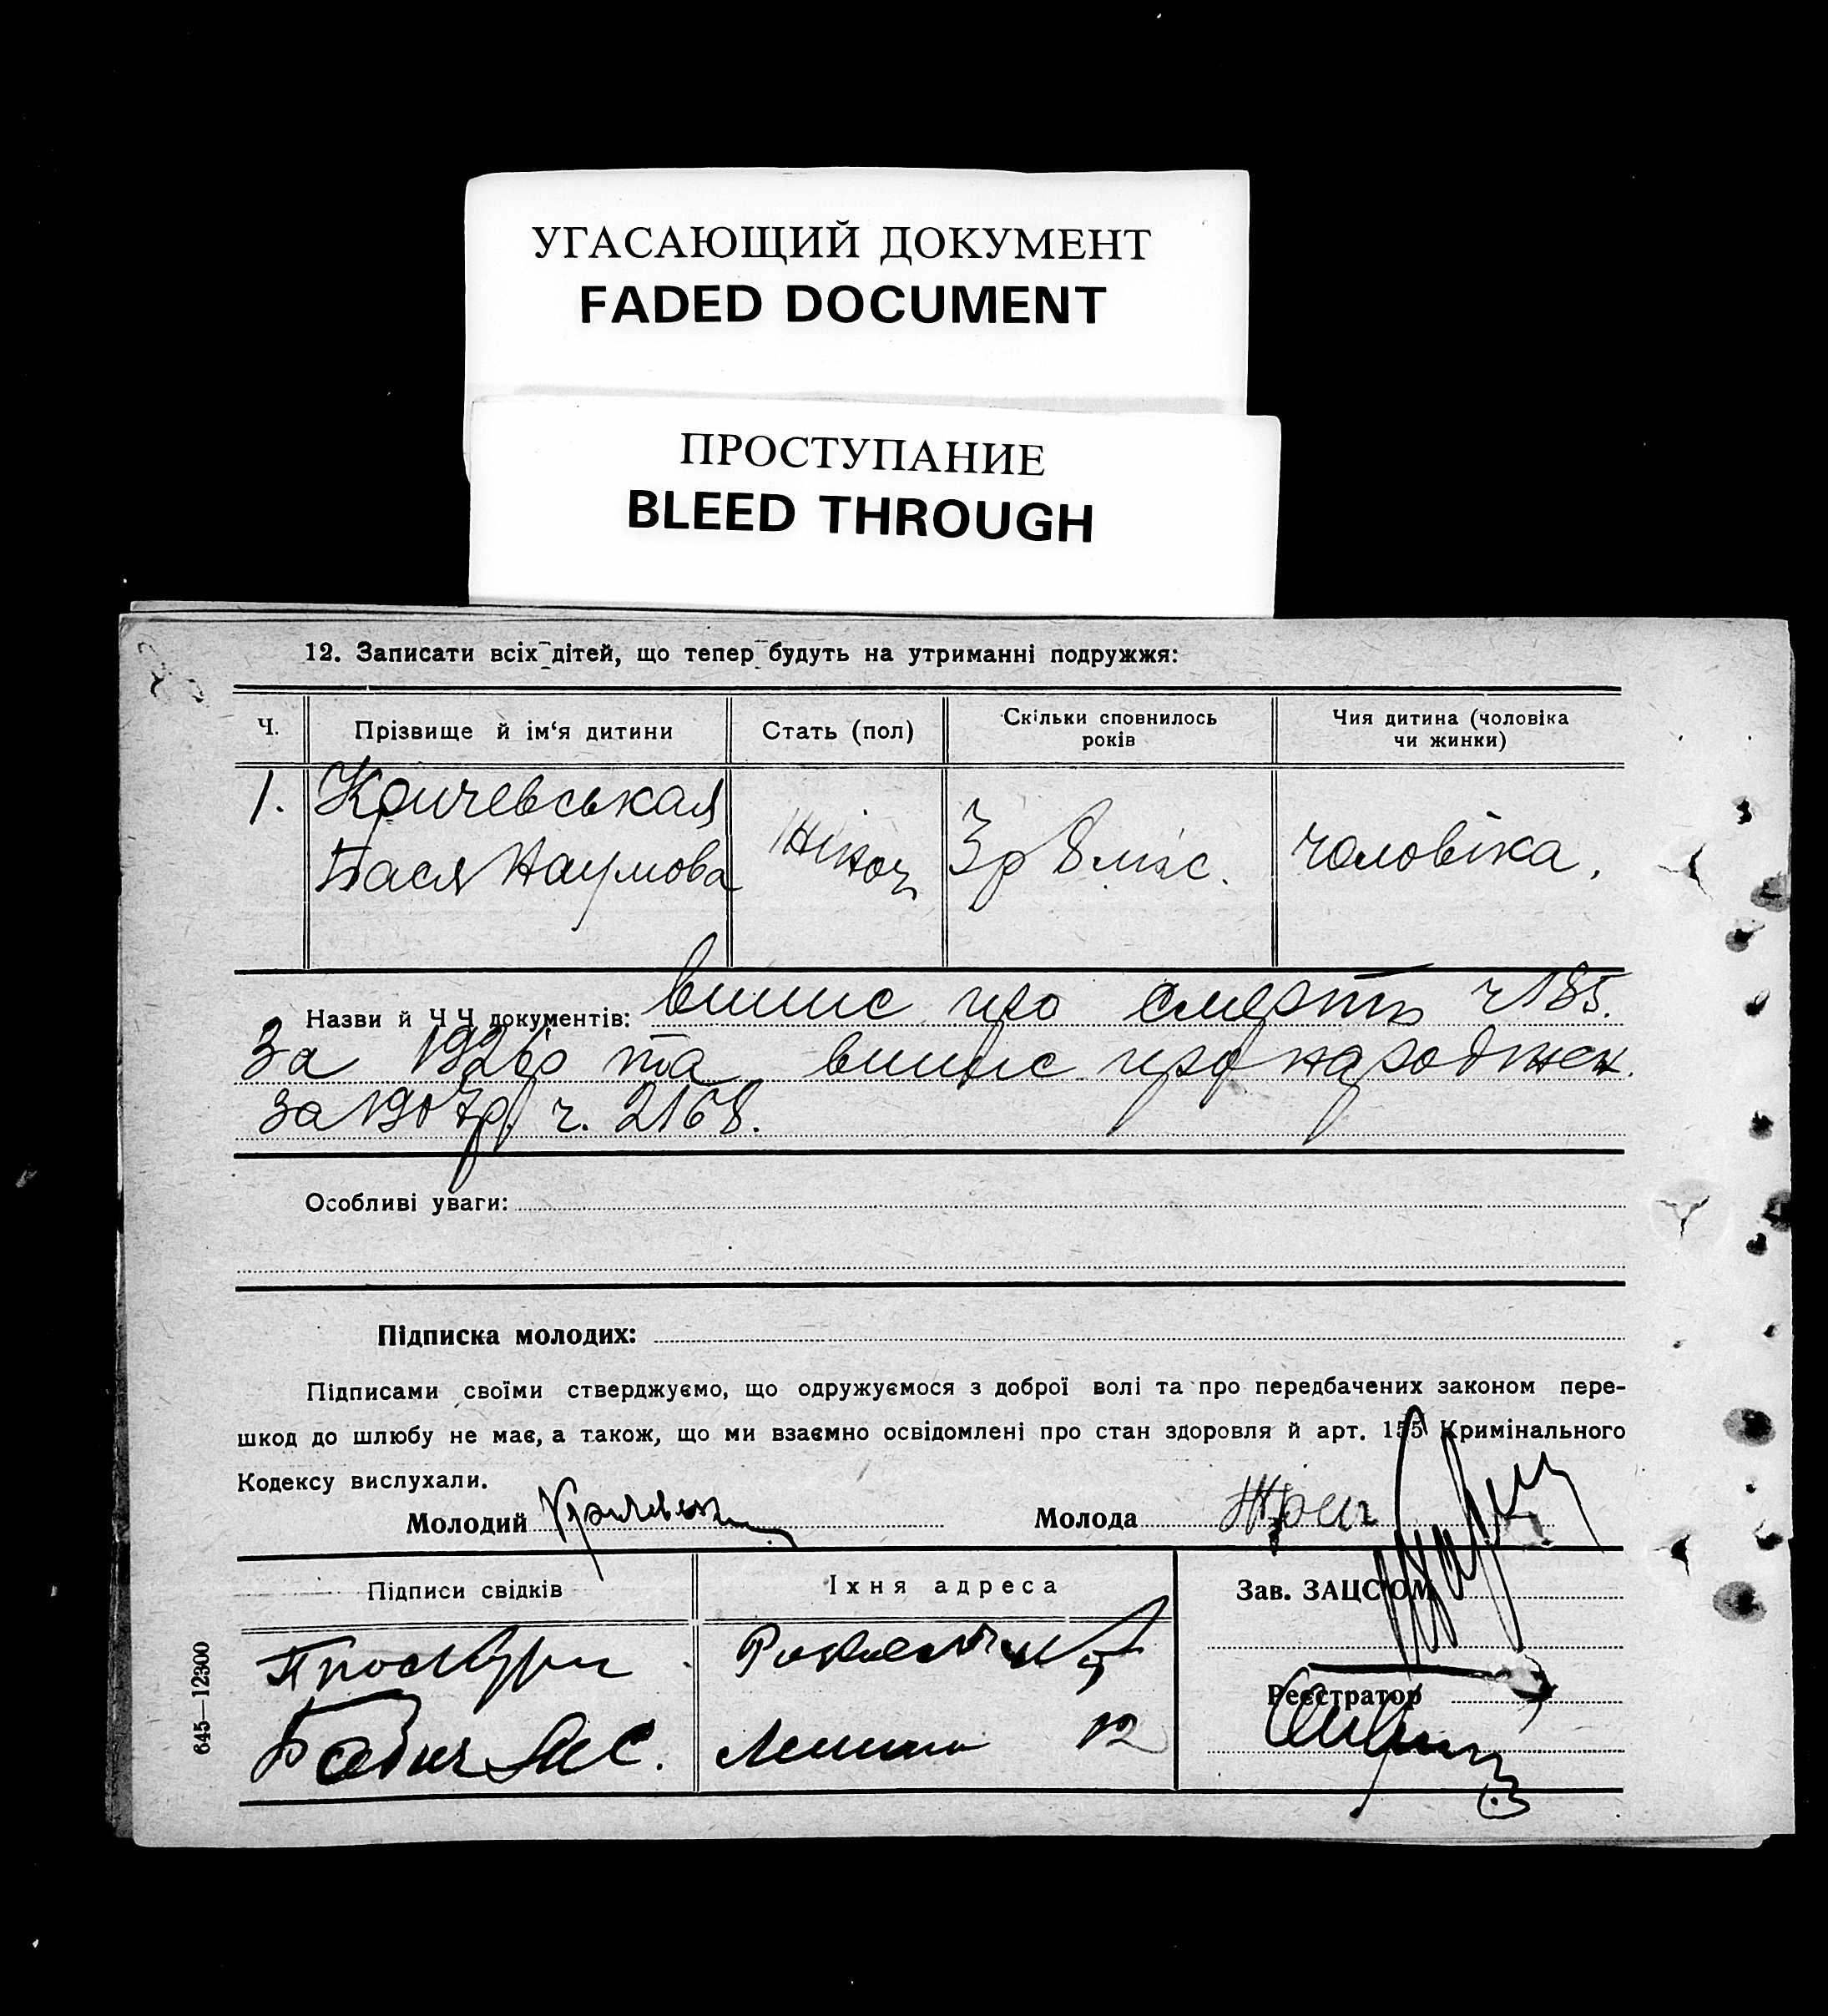 УГАСАЮЩИЙ ДОКУМЕНТ
FADED DOCUMENT
ПРОСТУПАНИЕ
BLEED THROUGH
12. Записати всіх дітей, що тепер будуть на утриманні подружжя:
Ч. Прізвище й ім‘я дитини Стать (пол) Скільки сповнилось років Чия дитина (чоловіка чи жинки)
1. Кричевськая
Бася Наумова жіноч 3 р 8 міс. чоловіка.
Назви й Ч Ч документів: випис про смерть ч 185.
За 1926р та випис про народжен.
за 1907р. ч. 2168.
Особливі уваги:
Підписка молодих:
Підписами своїми стверджуємо, що одружуємося з доброї волі та про передбачених законом пере-
шкод до шлюбу не має, а також, що ми взаємно освідомлені про стан здоровля й арт. 155 Кримінального
Кодексу вислухали.
Молодий Молода
Підписи свідків Їхня адреса Зав. ЗАЦС'ОМ
Реєстратор
Бабич М С. Ленина 12
645—12300